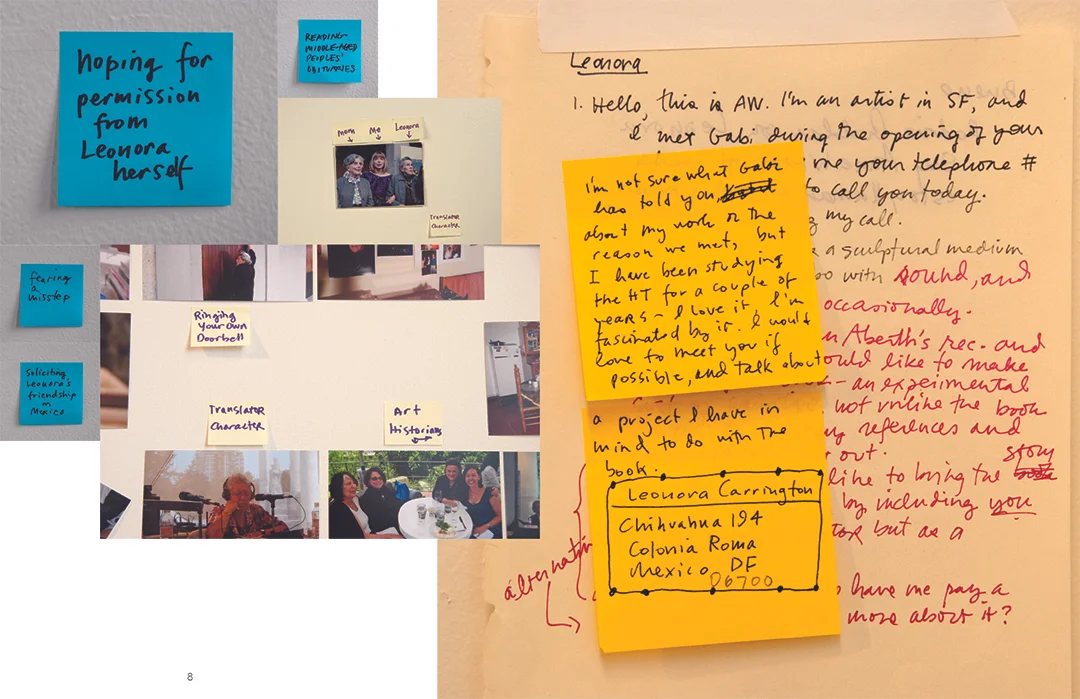 hoping for
permission
from
Leonora
herself
READING
MIDDLE-AGED
PEOPLES'
OBITUARIES
Mom Me Leonora
Translator
Character
fearing
a
misstep
Soliciting
Leonora's
friendship
in
Mexico
Ringing
Your Own
Doorbell
Translator
Character
Art
Historians
8
Leonora
1. Hello, this is AW. I'm an artist in SF, and
I met Gabi during the opening of your
me your telephone #
to call you today.
my call.
a sculptural medium
too with sound, and
occasionally.
Aberth's rec. and
would like to make
- an experimental
not unlike the book
my references and
out.
story
like to bring the
by including you
but as a
alternative
have me pay a
more about it?
I'm not sure what Gabi
has told you
about my work or the
reason we met, but
I have been studying
the HT for a couple of
years - I love it. I'm
fascinated by it. I would
love to meet you if
possible, and talk about
a project I have in
mind to do with the
book.
Leonora Carrington
Chihuahua 194
Colonia Roma
Mexico DF
06700